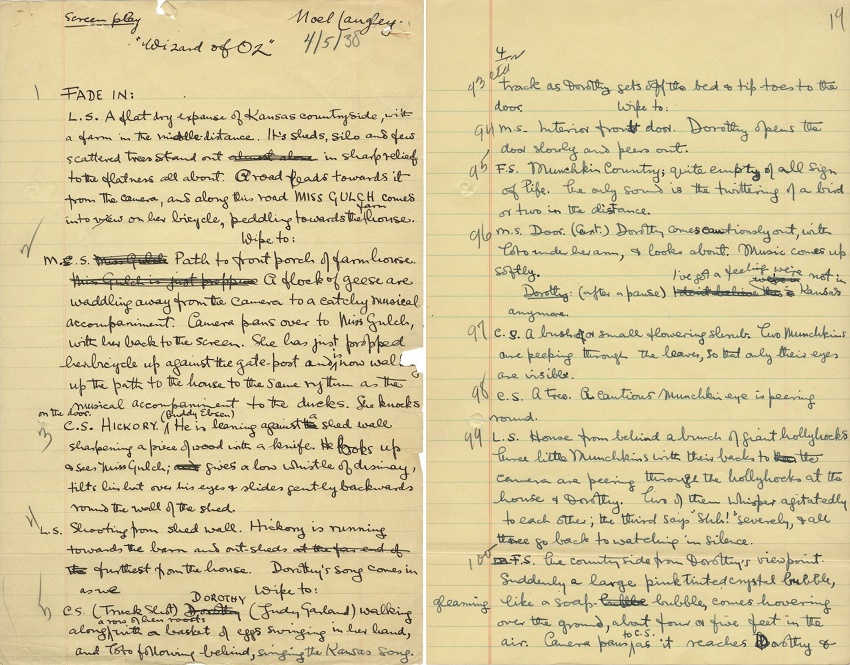 Screen play
Noel Langley.
"Wizard of OZ"
4/5/38
1 FADE IN:
L.S. A flat dry expanse of Kansas countryside, with
a farm in the middle-distance. It's sheds, silo and few
scattered trees stand out almost alone in sharp relief
to the flatness all about. A road leads towards it
from the camera, and along this road MISS GULCH comes
into view on her bicycle, peddling towards the farm house.
Wipe to:
2 M.C.S. Miss Gulch Path to front porch of farmhouse.
Miss Gulch is just propping A flock of geese are
waddling away from the camera to a catchy musical
accompaniment. Camera pans over to Miss Gulch,
with her back to the screen. She has just propped
her bicycle up against the gate-post and is now walks
up the path to the house to the same rythm as the
musical accompaniment to the ducks. She knocks
on the door.
3 C.S. HICKORY. (Buddy Ebsen) He is leaning against the a shed wall
sharpening a piece of wood with a knife. He looks up
& sees Miss Gulch; and gives a low whistle of dismay,
tilts his hat over his eyes & slides gently backwards
round the wall of the shed.
4 L.S. Shooting from shed wall. Hickory is running
towards the barn and out-sheds at the far end of
the furthest from the house. Dorothy's song comes in
as we
Wipe to:
5 C.S. (Truck Shot) Dorothy DOROTHY (Judy Garland) walking
along a row of hen roosts with a basket of eggs swinging in her hand,
and Toto following behind, singing the Kansas Song.
19
93 ctd
track as Dorothy sets off the bed & tip toes to the
door.
Wipe to:
94 M.S. Interior front door. Dorothy opens the
door slowly and peers out.
95 F.S. Munchkin Country; quite empty of all sign
of life. The only sound is the twittering of a bird
or two in the distance.
96 M.S. Door. (Ext.) Dorothy comes cautiously out, with
Toto under her arm, & looks about. Music comes up
softly.
Dorothy: (after a pause) I don't believe this is I've got a feeling we're not in Kansas
anymore.
97 C.S. A bush of small flowering shrub. Two Munchkins
are peeping through the leaves, so that only their eyes
are visible.
98 C.S. A tree. A cautious Munchkin eye is peering
round.
99 L.S. House from behind a bunch of giant hollyhocks
three little Munchkins with their backs to the
camera are peering through the hollyhocks at the
house & Dorothy. Two of them whisper agitatedly
to each other; the third says "Shh!" severely, & all
three go back to watching in silence.
100 F.S. The countryside from Dorothy's viewpoint.
Suddenly a large pink tinted crystal bubble,
gleaming like a soap bubble bubble, comes hovering
over the ground, about four or five feet in the
air. Camera pans to C.S. as it reaches Dorothy &